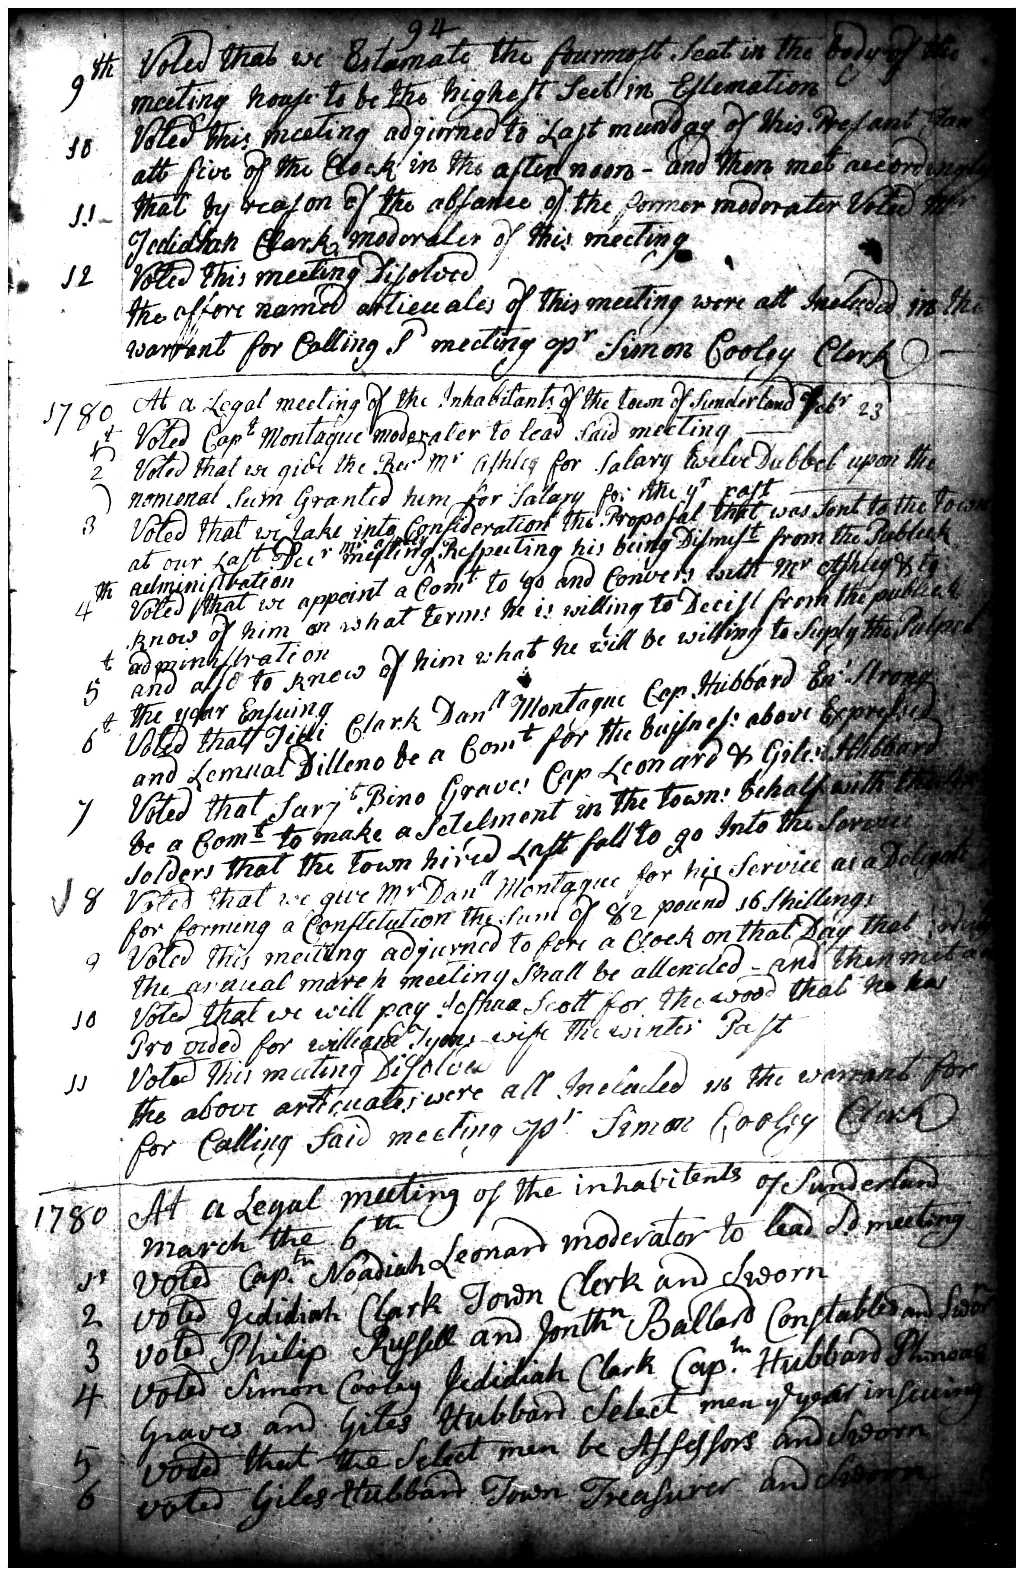 94
9th Voted that we Estamate the fourmost Seat in the body of the
meeting house to be the highest Seet in Estemation
10 Voted this meeting adjurned to Last munday of this Presant Jan
att five of the Clock in the after noon - and then met accordingly
11 that by reason of the absance of the former moderater Voted Mr
Jedidiah Clark moderater of this meeting
12 Voted this meeting Disolved
the affore named articuales of this meeting were all Included in the
warrant for Calling Sd meeting pr Simon Cooley Clerk
1780 At a Legal meeting of the Inhabitants of the town of Sunderland Febr 23
1t Voted Capt Montague moderater to lead Said meeting
2 Voted that we give the Revd Mr Ashley for Salary twelve Dubbel upon the
nomenal Sum Granted him for Salary for the yr past
3 Voted that we take into Consideration the Proposal that was Sent to the town
at our Last Decr meeting Respecting his being Dismist from the Publeck
mr ashley
administration
4th Voted that we appoint a Comt to go and Convers with Mr Ashley & to
know of him on what terms he is willing to Decist from the publeck
administration
5t and also to know of him what he will be willing to Suply the Pulpet
the year Ensuing
6t Voted that Jedi Clark Danll Montague Cap Hubbard Ens Strong
and Lemual Dilleno be a Comt for the buisness above Expressed
7 Voted that Sarjt Bino Graves Cap Leonard & Giles Hubbard
be a Comt to make a Setelment in the towns behalf with the
Solders that the town hired Last fall to go Into the Service
8 Voted that we give Mr Danll Montague for his Service as a Delegate
for forming a Constetution the Sum of 82 pound 16 Shillings
9 Voted this meeting adjurned to fore a Clock on that Day that
the annual march meeting Shall be attended - and then met
10 Voted that we will pay Joshua Scott for the wood that he has
Provided for william Tyons wife the winter Past
11 Voted this meeting Disolved
the above articuales were all Included in the warrant for
for Calling Said meeting pr Simon Cooley Clerk
1780 At a Legal meeting of the inhabitents of Sunderland
march the 6th
1st Voted Captn Noadiah Leonard moderator to lead Sd meeting
2 voted Jedidiah Clark Town Clerk and Sworn
3 voted Philip Russell and Jonthn Ballard Constables and Sworn
4 voted Simon Cooley Jedidiah Clark Captn Hubbard Phineas
Graves and Giles Hubbard Select men ye year insueing
5 voted that the Select men be Assessors and Sworn
6 voted Giles Hubbard Town Treasurer and Sworn